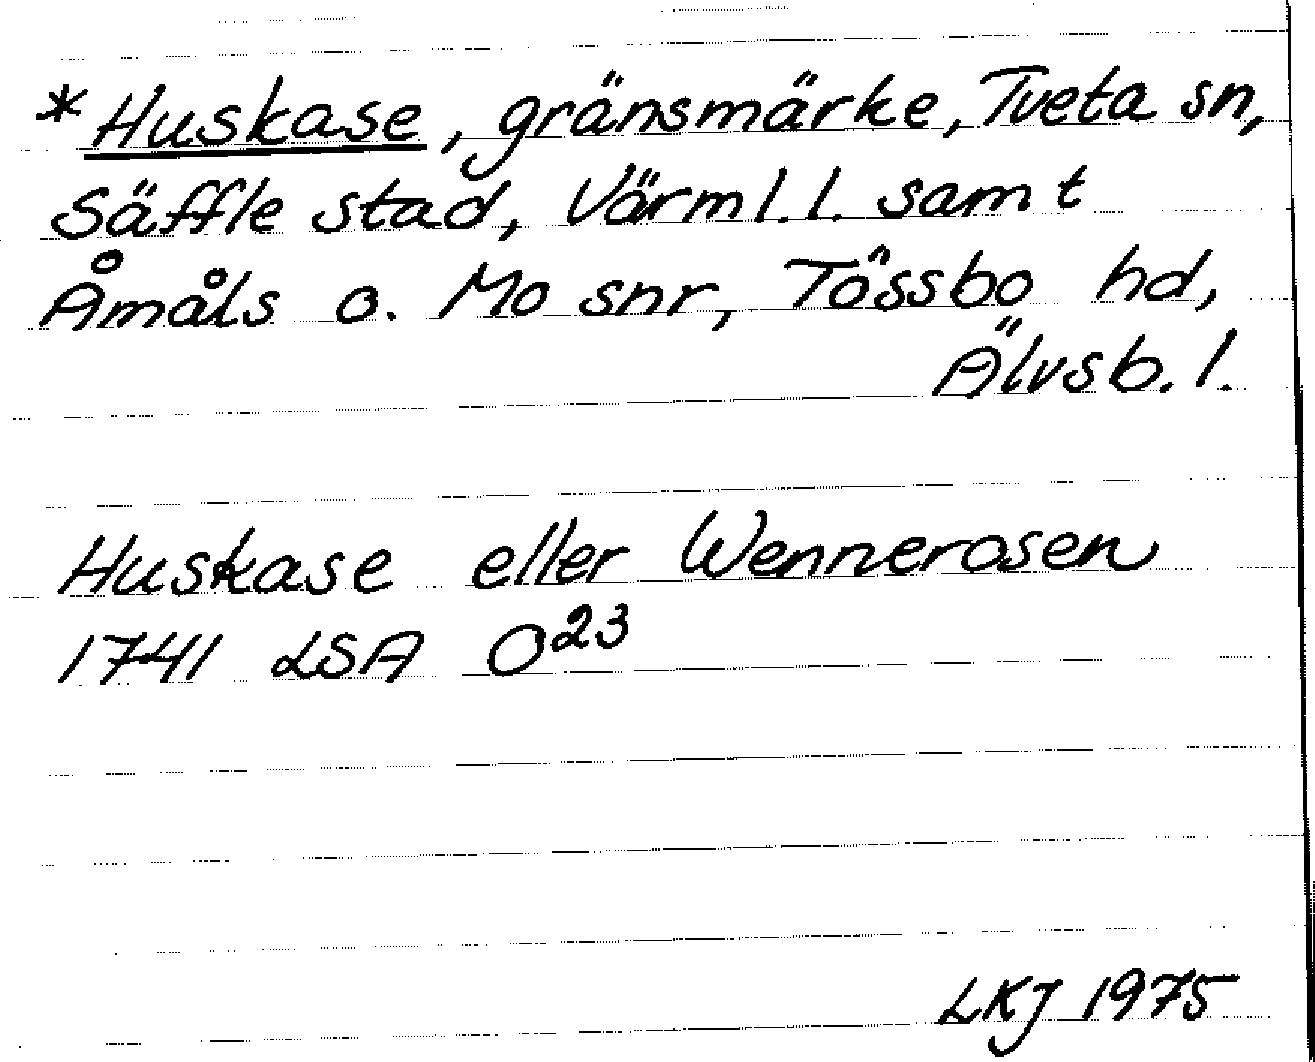 *Huskase, gränsmärke, Tveta sn,
Säffle stad, Värml.l. samt
Åmåls o. Mo snr, Tössbo hd,
Älvsb.l.
Huskase eller Wennerosen
1741 LSA O²³
LKJ 1975